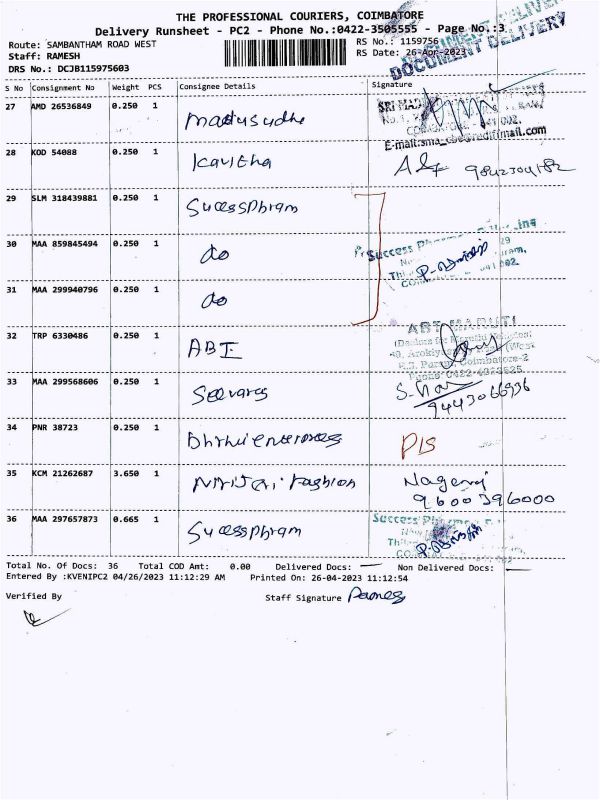 THE PROFESSIONAL COURIERS, COIMBATORE
Delivery Runsheet - PC2 - Phone No.:0422-3505555 - Page No.:3
Route: SAMBANTHAM ROAD WEST
RS No.: 1159756
Staff: RAMESH
RS Date: 26-Apr-2023
DOCUMENT DELIVERY
DRS No.: DCJB115975603
S No Consignment No Weight PCS Consignee Details Signature
27 AMD 26536849 0.250 1 Madusudhe
SRI MAD
E-mail:sma_cbe@rediffmail.com
28 KOD 54088 0.250 1 Kavitha 9842304182
29 SLM 318439881 0.250 1 Sucessphram
30 MAA 859845494 0.250 1 do
Success
31 MAA 299940796 0.250 1 do
32 TRP 6330486 0.250 1 ABT
ABT MARUTI
Coimbatore-2
33 MAA 299568606 0.250 1 9443066936
34 PNR 38723 0.250 1
35 KCM 21262687 3.650 1 Fashion Nageraj
9600396000
36 MAA 297657873 0.665 1 Sucessphram
Success
Total No. Of Docs: 36 Total COD Amt: 0.00 Delivered Docs: Non Delivered Docs:
Entered By :KVENIPC2 04/26/2023 11:12:29 AM Printed On: 26-04-2023 11:12:54
Verified By
Staff Signature